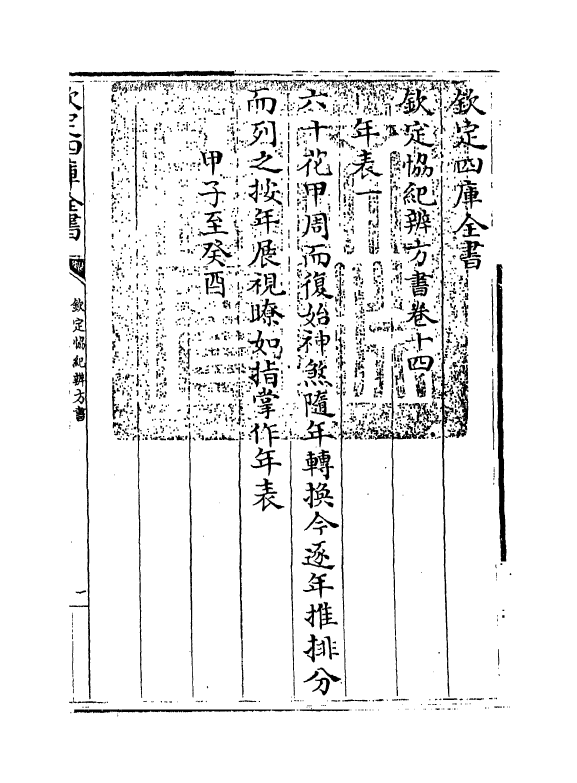 欽定四庫全書
欽定協紀辨方書卷十四
年表一
六十花甲周而復始神煞隨年轉換今逐年推排分
而列之按年展視瞭如指掌作年表
甲子至癸酉
欽定四庫全書
欽定協紀辨方書
一